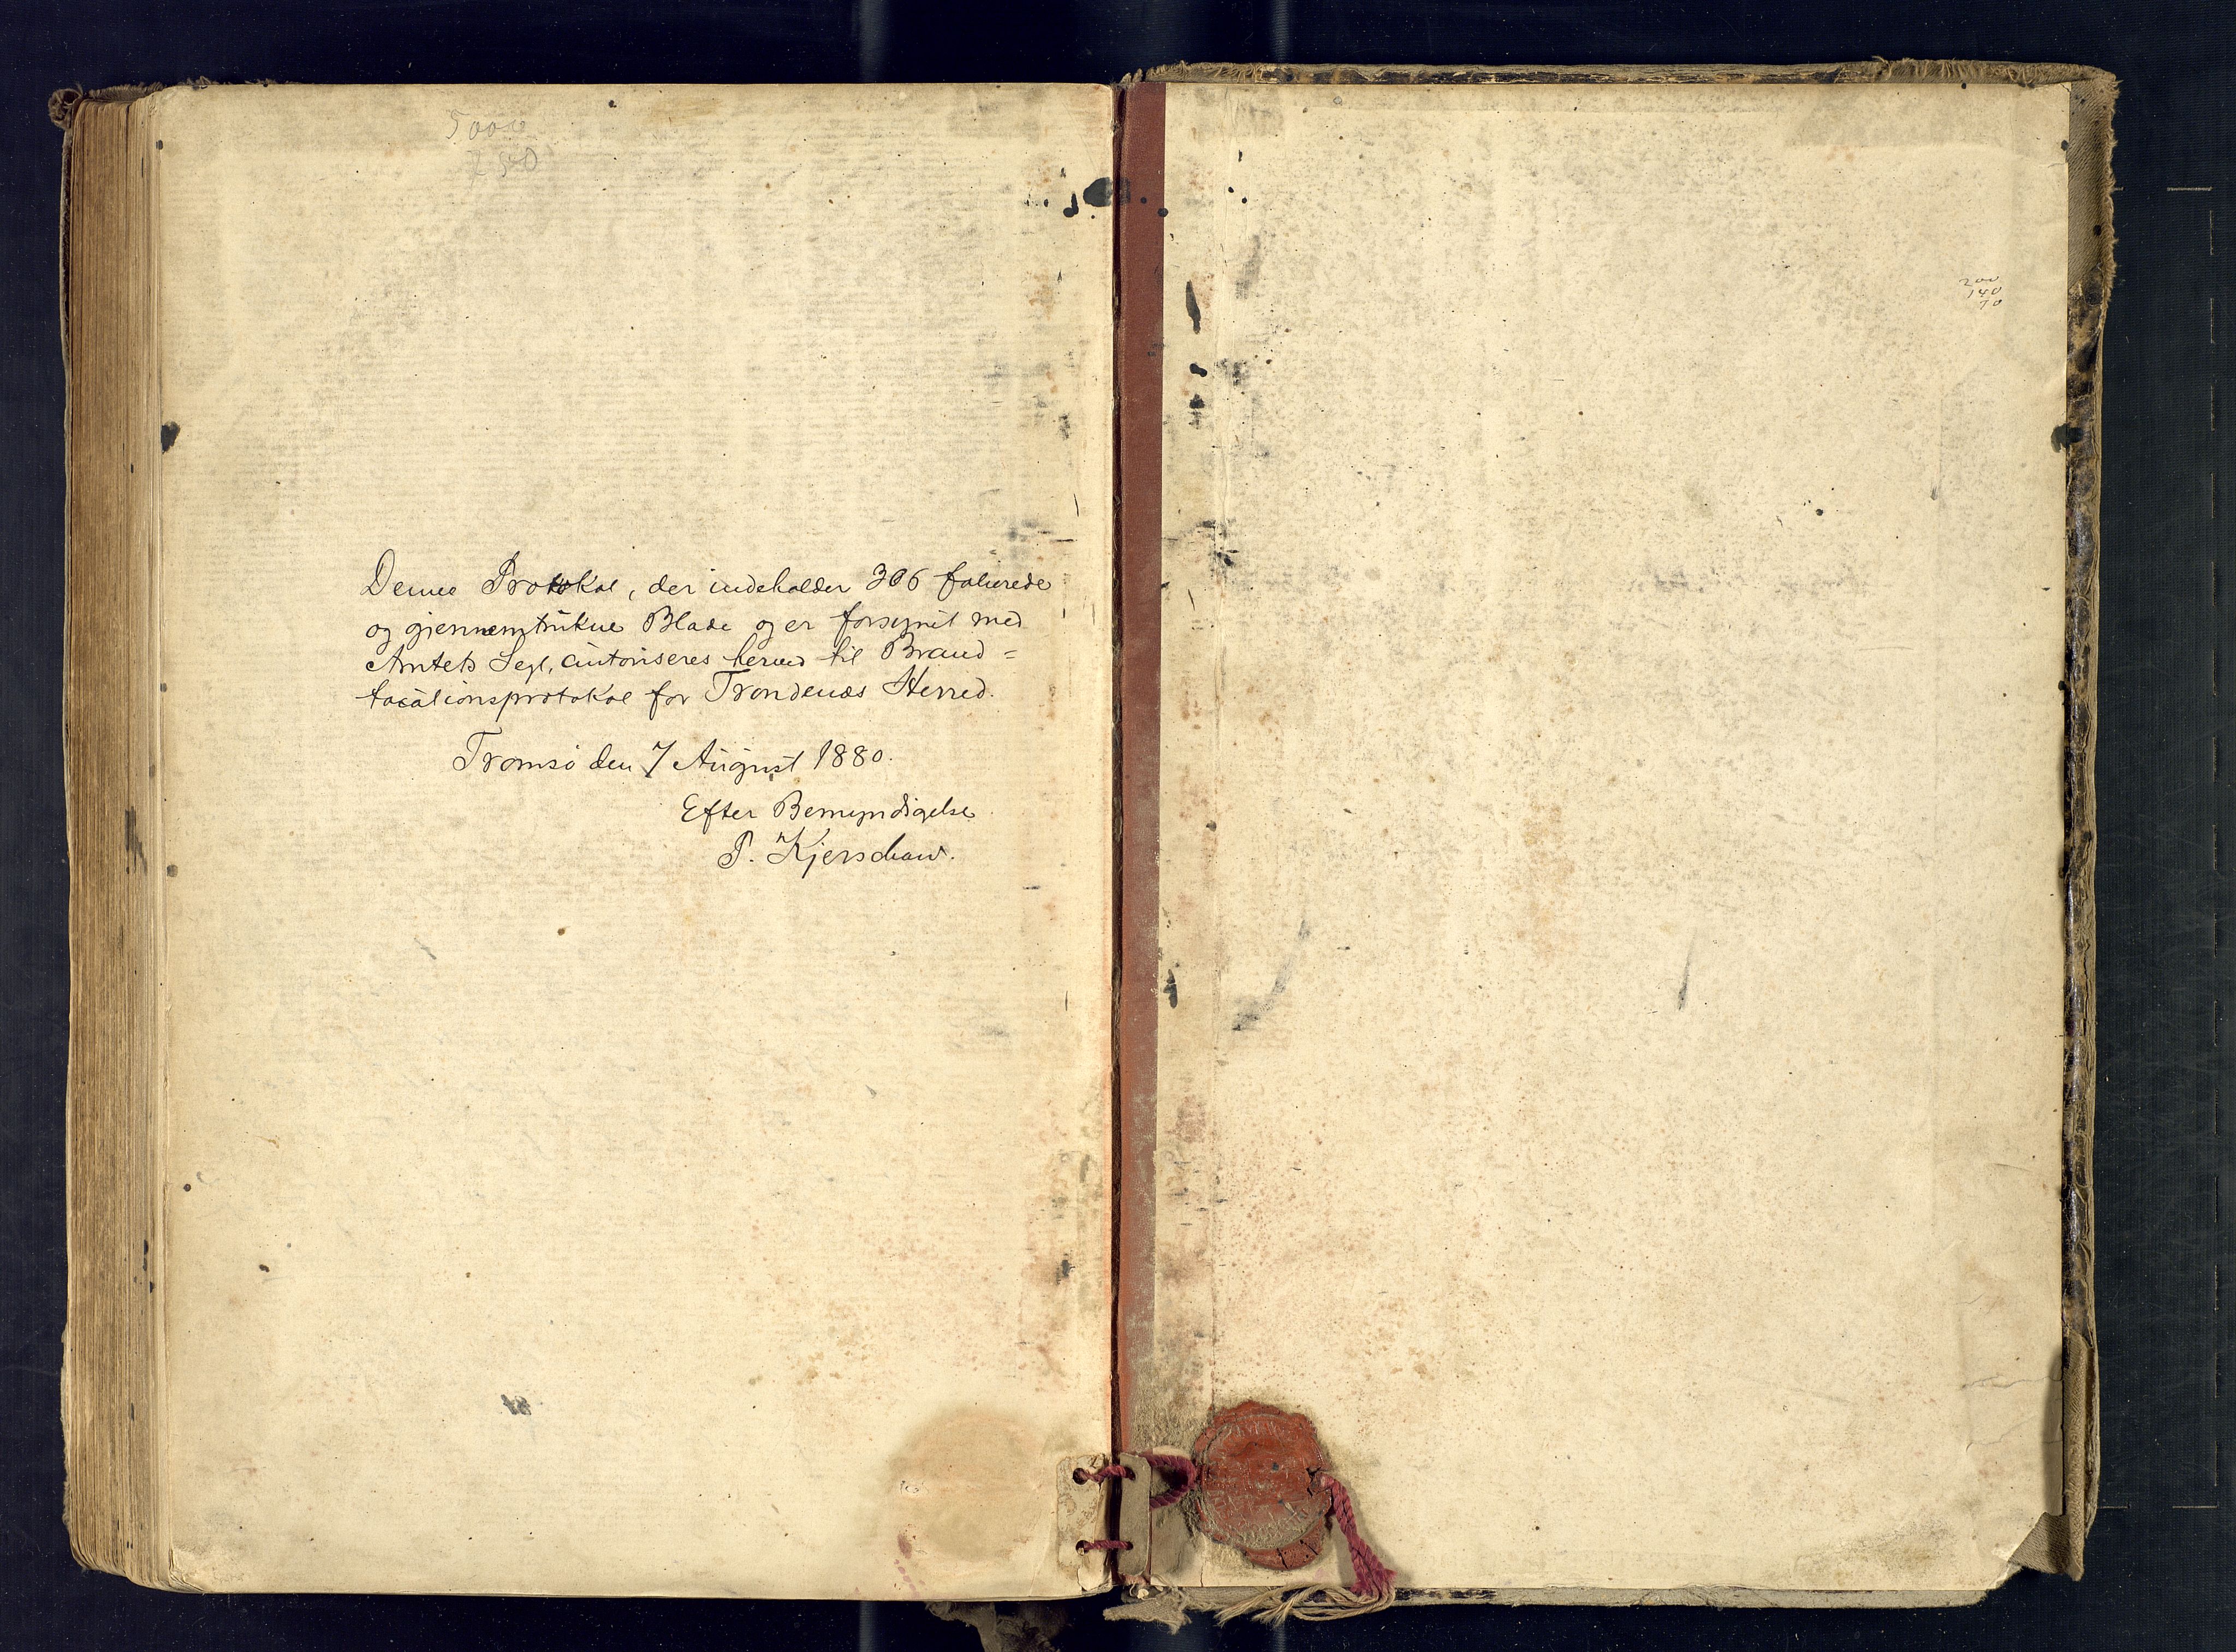 500
250
Denne Protokol, der indeholder 306 folierede
og gjennemtrukne Blade og er forsynet med
Amtets Segl, autoriseres herved til Brand=
taxationsprotokol for Trondenæs Herred.
Tromsø den 7 August 1880.
Efter Bemyndigelse
P. Kjerschow.
200
140
70